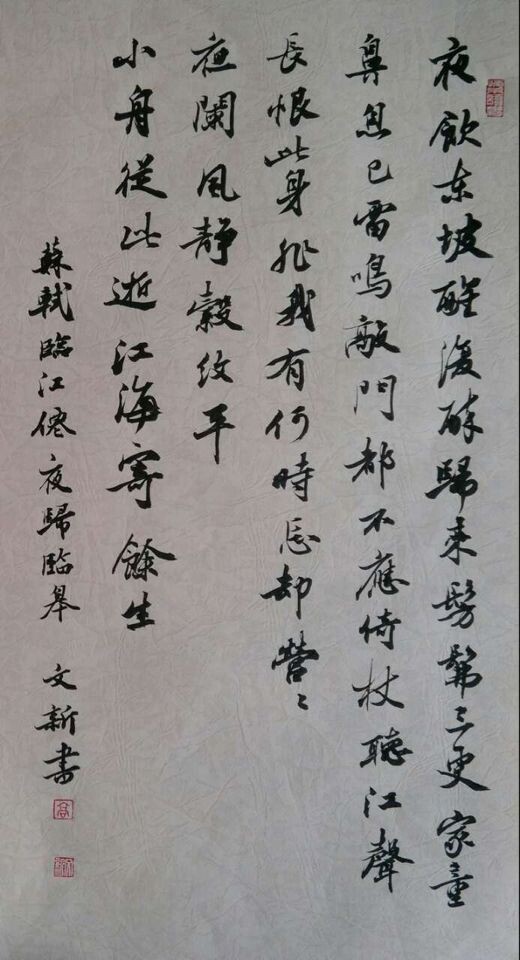 夜飲东坡醒復醉歸来髣髴三更家童
鼻息已雷鳴敲門都不應倚杖聽江聲
長恨此身非我有何時忘却營〻
夜闌風静縠紋平
小舟從此逝江海寄餘生
蘇軾臨江僊夜歸臨皋 文新書